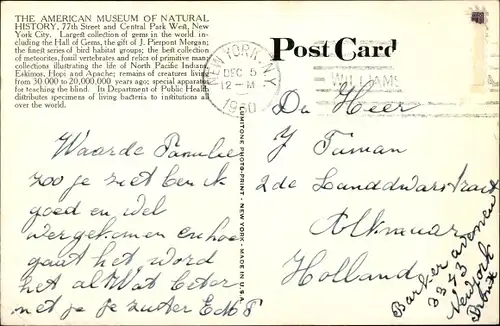 THE AMERICAN MUSEUM OF NATURAL
HISTORY, 77th Street and Central Park West, New
York City. Largest collection of gems in the world, in-
cluding the Hall of Gems, the gift of J. Pierpont Morgan;
the finest series of bird habitat groups; the best collection
of meteorites, fossil vertebrates and relics of primitive man;
collections illustrating the life of North Pacific Indians,
Eskimos, Hopi and Apache; remains of creatures living
from 30.000 to 20,000.000 years ago; special apparatus
for teaching the blind. Its Department of Public Health
distributes specimens of living bacteria to institutions all
over the world.
Post Card
NEW YORK, N.Y.
DEC 5
12 - M
1960
WILLIAMS
LUMITONE PHOTO-PRINT - NEW YORK - MADE IN U.S.A.
Waarde Familie
zoo je ziet ben ik
goed en wel
en hoe
gaat het word
het al wat beter
met je je zuster
De Heer
J
2de Landdwarsstraat
Alkmaar
Holland
Barker avenue
3343
New York